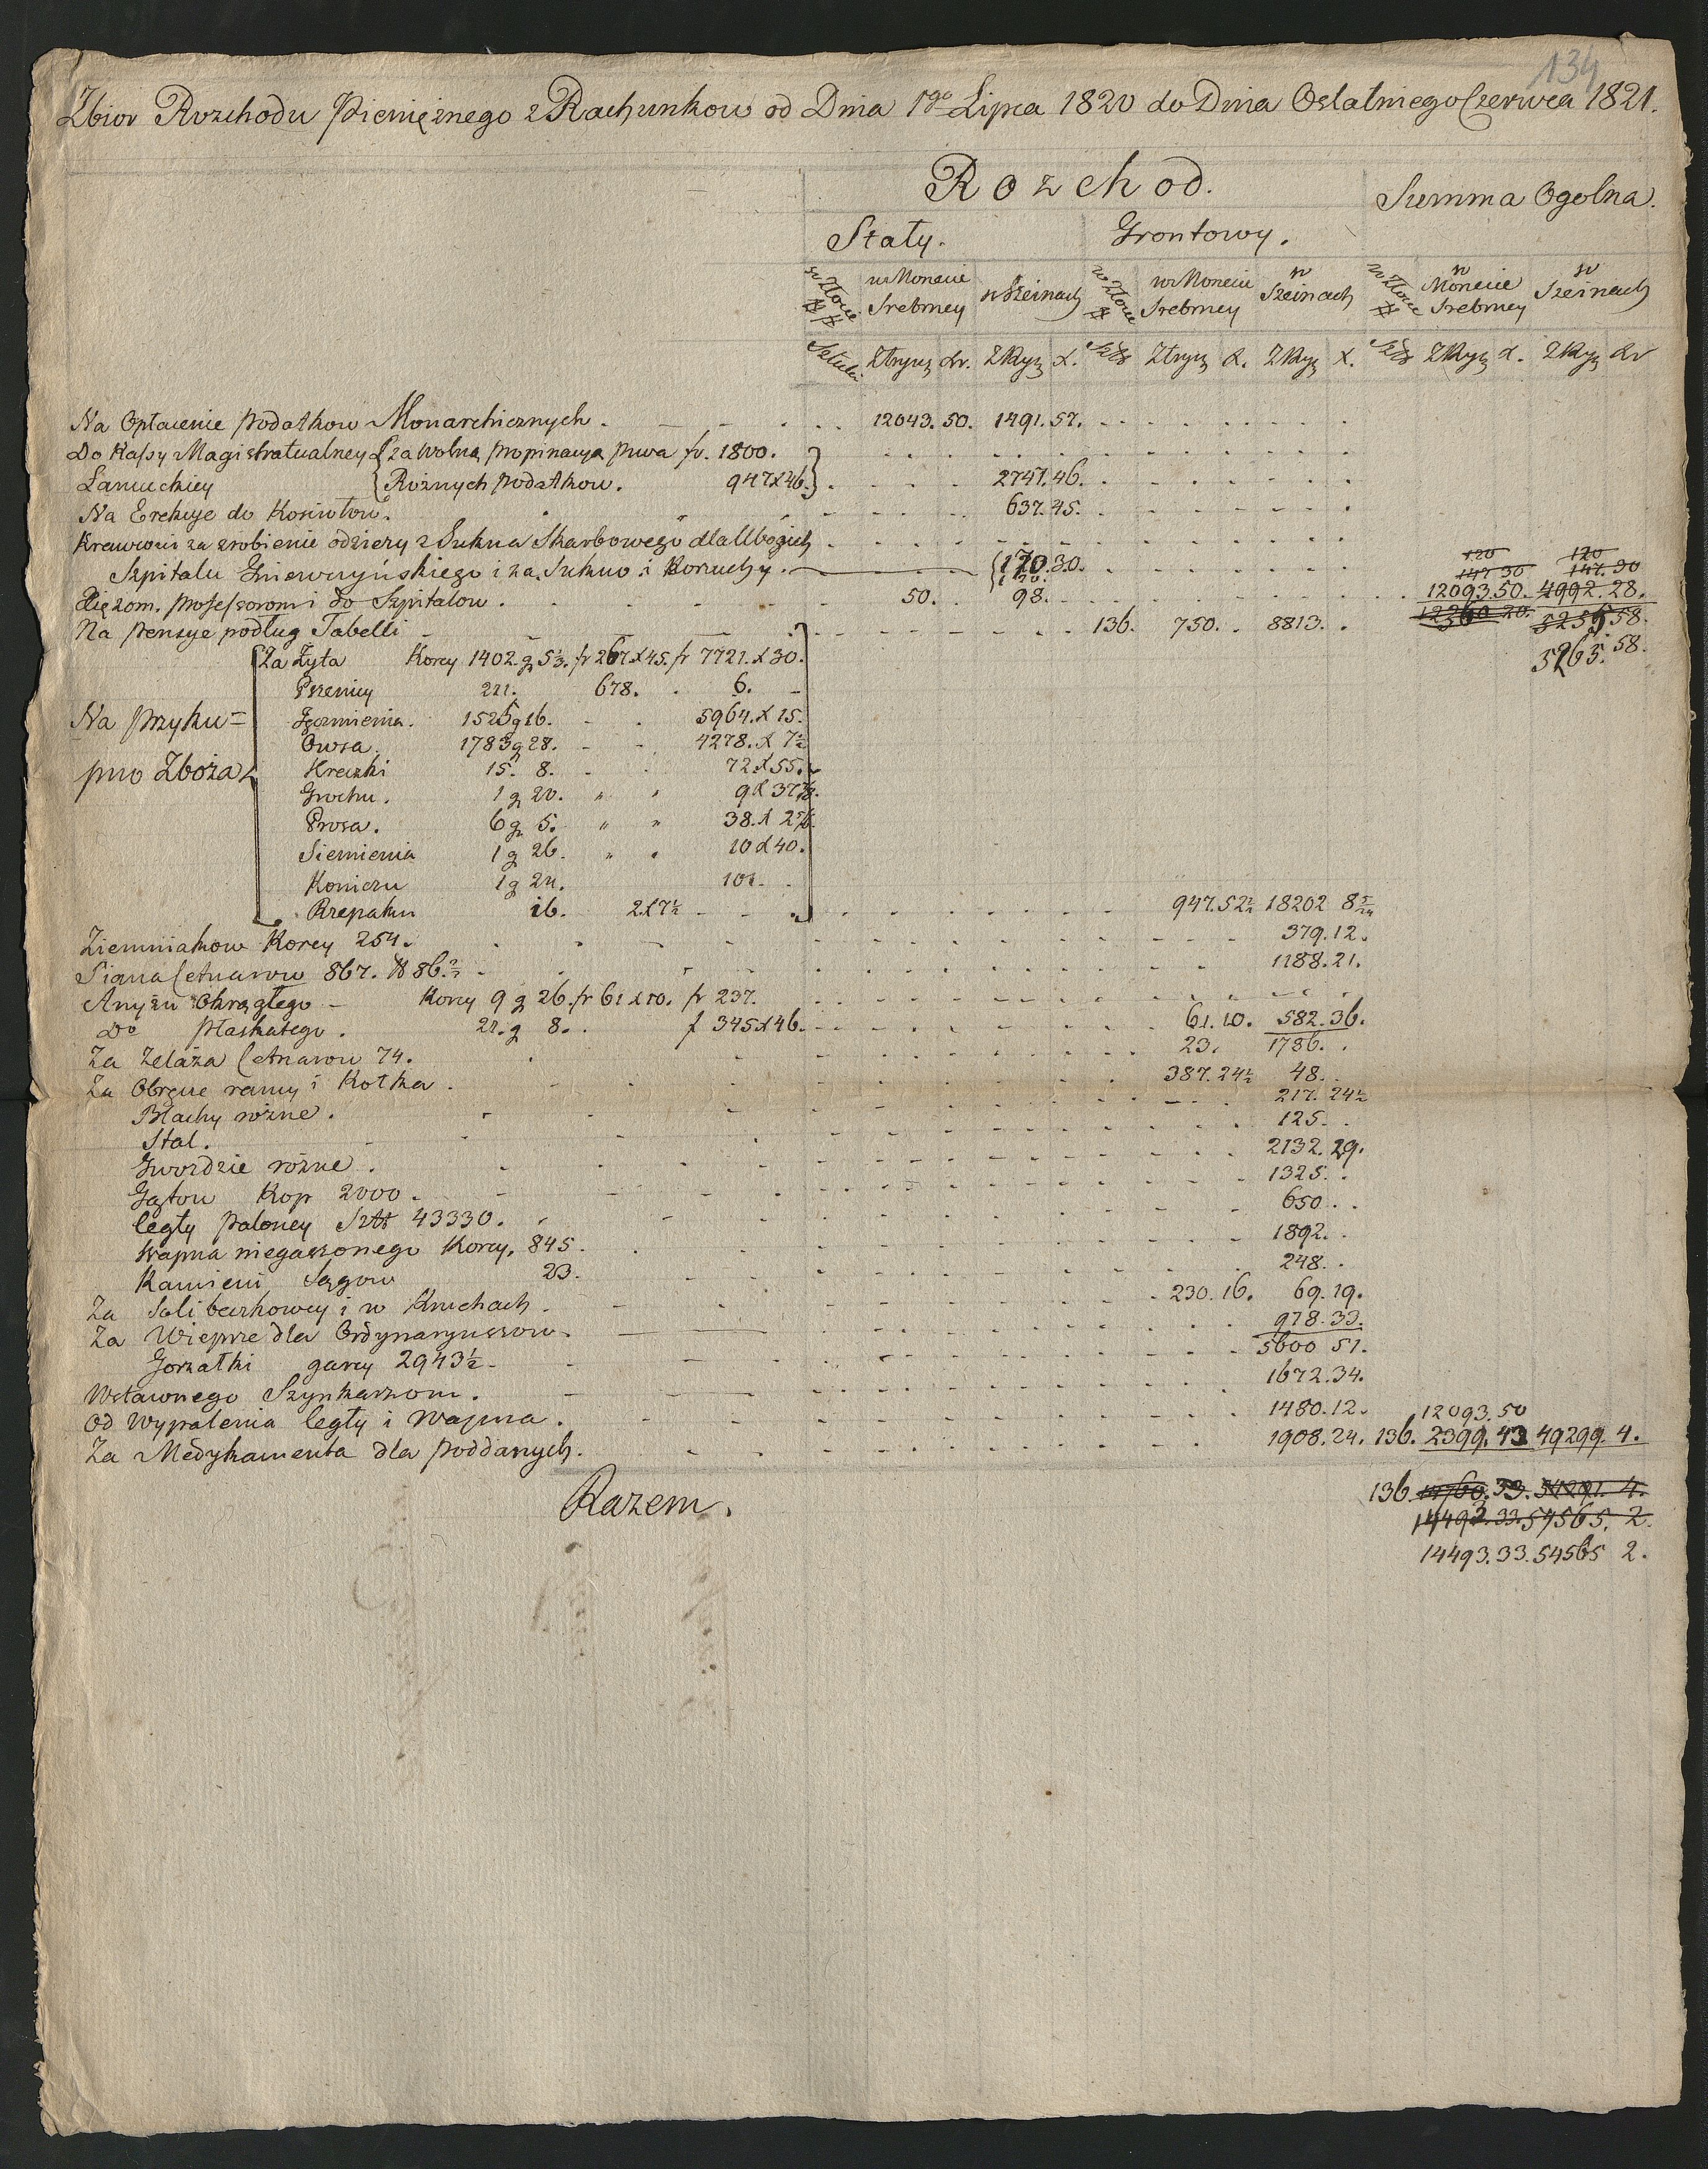 134
Zbior Rozchodu Pieniężnego z Rachunkow od Dnia 1go Lipca 1820 do Dnia Ostatniego Czerwca 1821.
Rozchod.
Summa Ogolna.
Stały. Grontowy.
w Złocie w Monecie Srebrney w Szeinach w Złocie w Monecie Srebrney w Szeinach w Złocie w Monecie Srebrney w Szeinach
Sztuki Ztryn xr. ZRyn x. Szt Ztryn x. ZRyn x. Szt ZRyn x. ZRyn xr
Na Opłacenie podatkow Monarchicznych. 12043.50. 1491.57.
Do Kassy Magistratualney za wolną propinacyą piwa fr. 1800.
Łancuckiey Rożnych podatkow. 947 x 46. 2747.46.
Na Erekcye do Kosciołow. 637.45.
Krawcowi za zrobienie odzieży z Sukna Skarbowego dla Ubogich
Szpitalu Gniewczyńskiego i za Sukno i Kożuchy. 120.30. 120 120
147 30 147.30
Xiężom. professorom i do Szpitalow. 50. 98. 12093.50. 4992.28.
Na pensye podług Tabelli 136. 750. 8813. 12240 20. 5255 58.
5265.58.
Za Żyta Korcy 1402. g 5⅓. fr 267. x 45. fr 7721. x 30.
Pszenicy 221. 678. 6.
Na przyku= Jęczmienia. 1525 g 16. 5964. x 15.
Owsa. 1783 g 28. 4278. x 7½
pno Zboża Hreczki 15. 8. 72. x 55.
Grochu. 1 g 20. " " 9 x 37⅞.
Prosa. 6 g 5. " " 38. x 2⅚.
Siemienia 1 g 26. " " 10 x 40.
Koniczu 1 g 24. 101.
Rzepaku 16. 2 x 7½ 947.52½ 18202 8
Ziemniakow Korcy 254. 379.12.
Siana Cetnarow 867. ℔ 86. 1188.21.
Anyżu Okrągłego Korcy 9 g 26. fr 61 x 10. fr 237.
Do płaskatego. 21. g 8. f 345 x 46. 61.10. 582.36.
Za Zelaza Cetnarow 74. 23. 1786.
Za Obręcze ramy i Kotka. 387.24½ 48.
Blachy rożne. 217. 24½
Stal. 125.
Gwoździe rożne. 2132.29.
Gątow Kop 2000. 1325.
Cegły paloney Sztt 43330. 650.
Wapna niegaszonego Korcy, 845. 1892.
Kamieni Sągow 23. 248.
Za Soli beczkowey i w Kruchach. 230.16. 69.19.
Za Wieprze dla Ordynaryuszow. 978.33.
Gorzałki garcy 2943½. 5600 51.
Wstawnego Szynkarzom. 1672.34.
Od Wypalenia Cegły i Wapna. 1480.12. 12093.50
Za Medykamenta dla poddanych. 1908.24. 136. 2399.43 49299.4.
Razem. 136. 14760.33. 54291.4.
14493.33. 54565. 2.
14493.33. 54565 2.